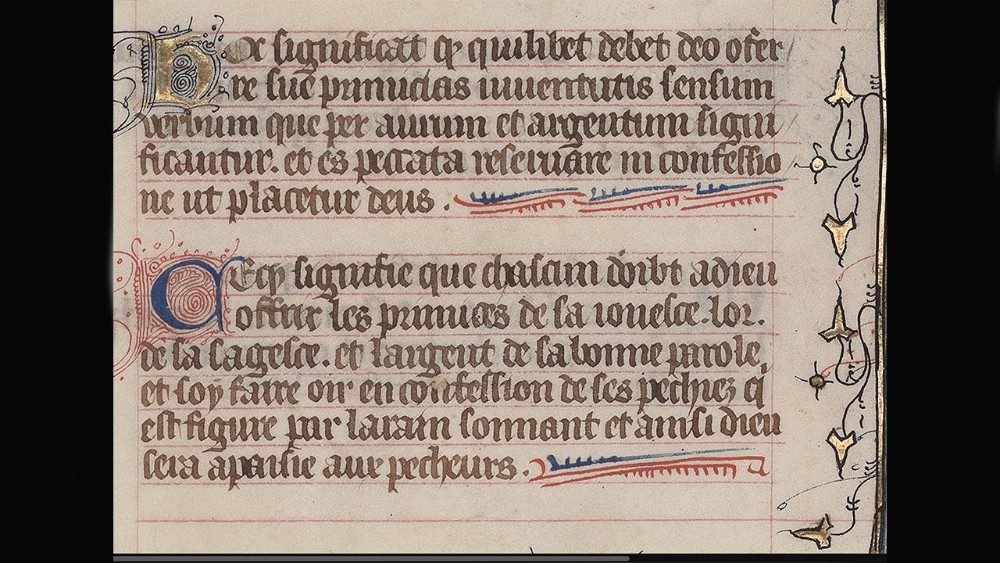 Hoc significat qꝫ quilibet debet deo offer
re sue primicias iuuentutis sensum
verbum que per aurum et argentum signi
ficantur. et es peccata reseruare in confessio
ne ut placetur deus .
Cecy signifie que chascun doibt a dieu
offrir les primices de sa ionesce. lor.
de sa sagesce. et largent de sa bonne parole.
et soy faire oir en confession de ses pechiez q̇
est figure par larain sonnant et ainsi dieu
sera apaisie aux pecheurs .